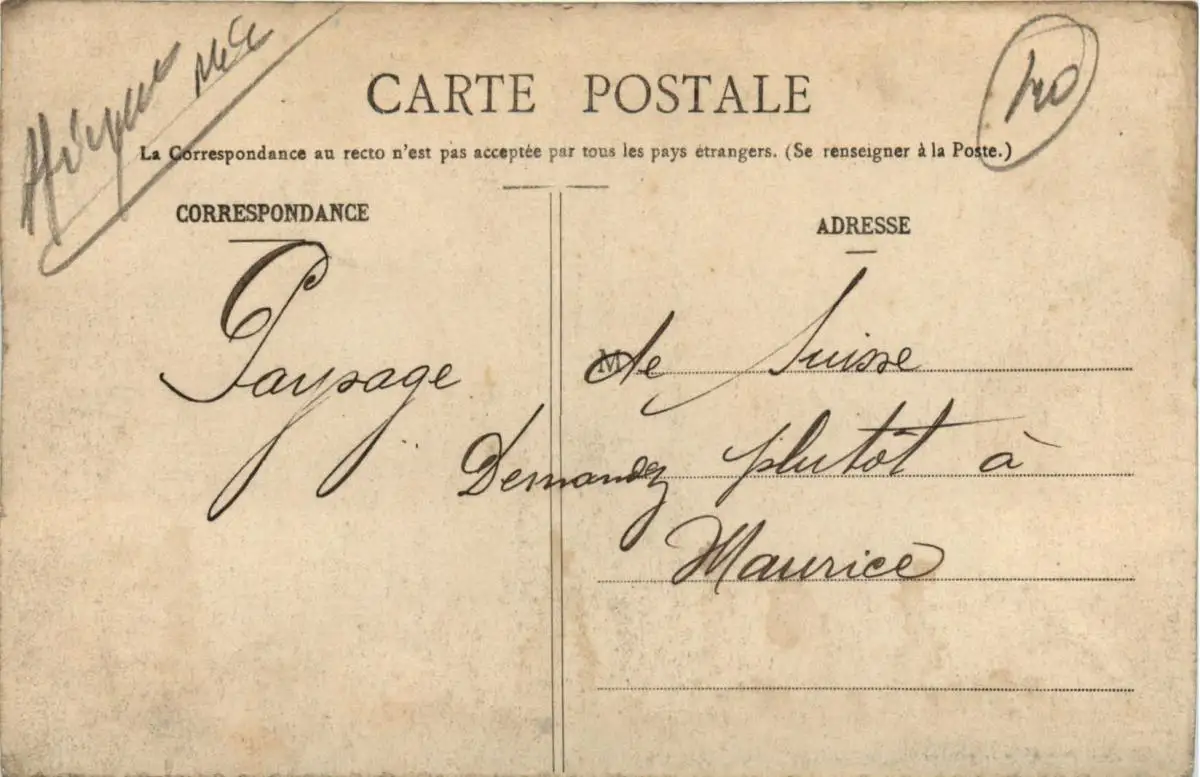 CARTE POSTALE
La Correspondance au recto n'est pas acceptée par tous les pays étrangers. (Se renseigner à la Poste.)
CORRESPONDANCE
ADRESSE
Paysage de Suisse
M
Demandez plutôt à
Maurice